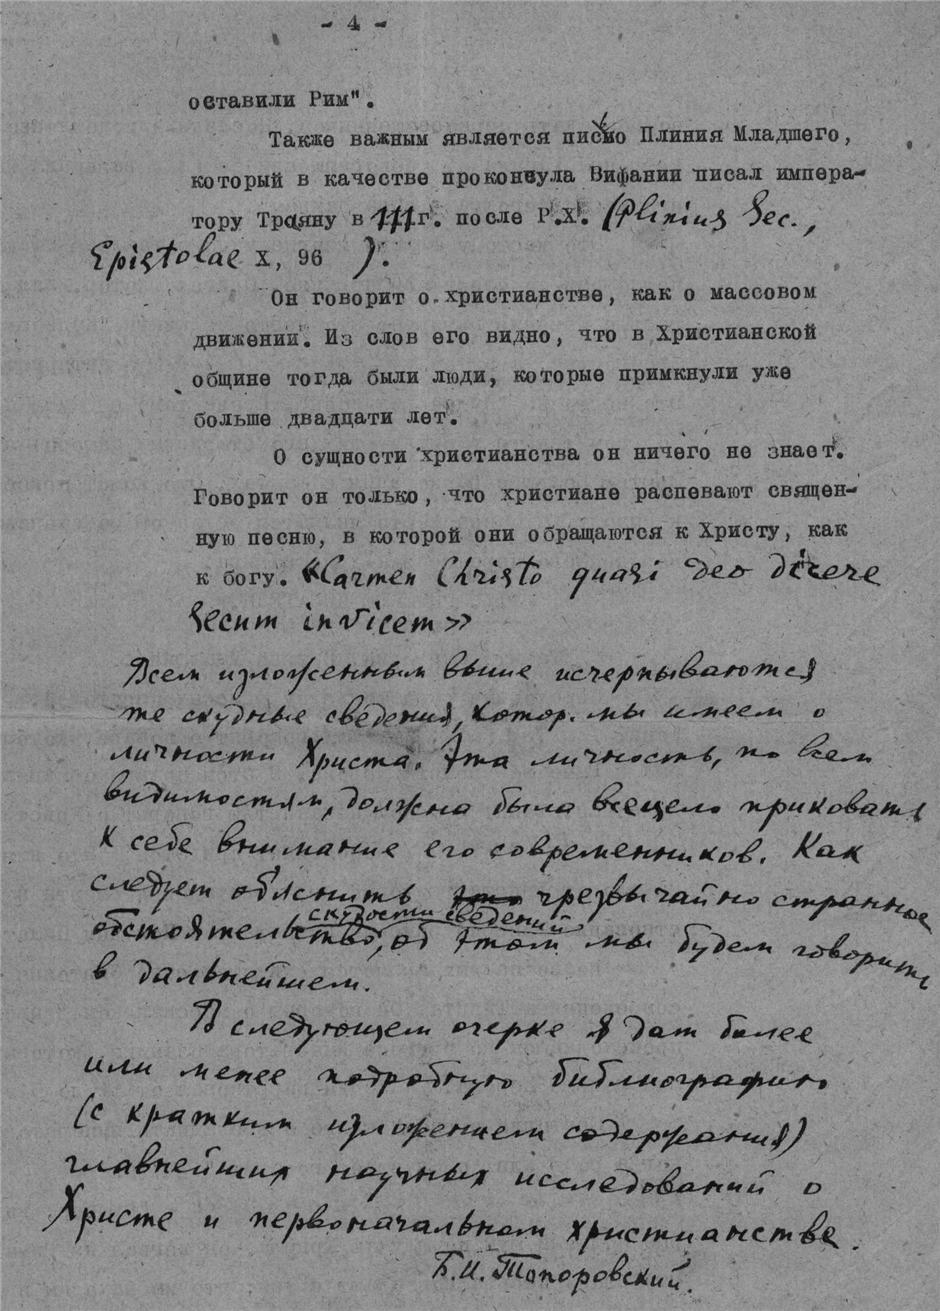 - 4 -
оставили Рим".
Также важным является письмо Плиния Младшего,
который в качестве проконсула Вифании писал импера-
тору Траяну в 111 г. после Р.Х. (Plinius Sec.,
Epistolae X, 96 ).
Он говорит о христианстве, как о массовом
движении. Из слов его видно, что в Христианской
общине тогда были люди, которые примкнули уже
больше двадцати лет.
О сущности христианства он ничего не знает.
Говорит он только, что христиане распевают священ-
ную песню, в которой они обращаются к Христу, как
к богу. «Carmen Christo quasi deo dicere
secum invicem»
Всем изложенным выше исчерпываются
те скудные сведения, котор. мы имеем о
личности Христа. Эта личность, по всем
видимостям, должна была всецело приковать
к себе внимание его современников. Как
следует объяснить это чрезвычайно странное
скудости сведений
обстоятельство, об этом мы будем говорить
в дальнейшем.
В следующем очерке я дам более
или менее подробную библиографию
(с кратким изложением содержания)
главнейших научных исследований о
Христе и первоначальном христианстве.
Б.И. Топоровский.